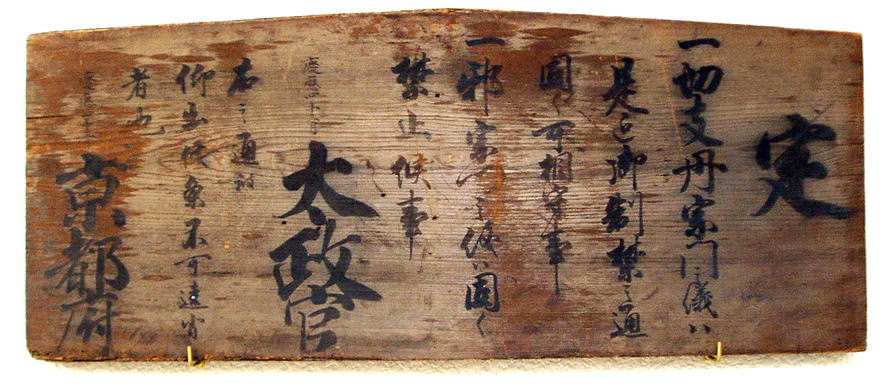 定
一切支丹宗門之儀ハ
是迄御制禁之通
固く可相守事
一邪宗門之儀ハ固く
禁止候事
慶應四年
太政官
右之通被
仰出候条不可違背
者也
京都府